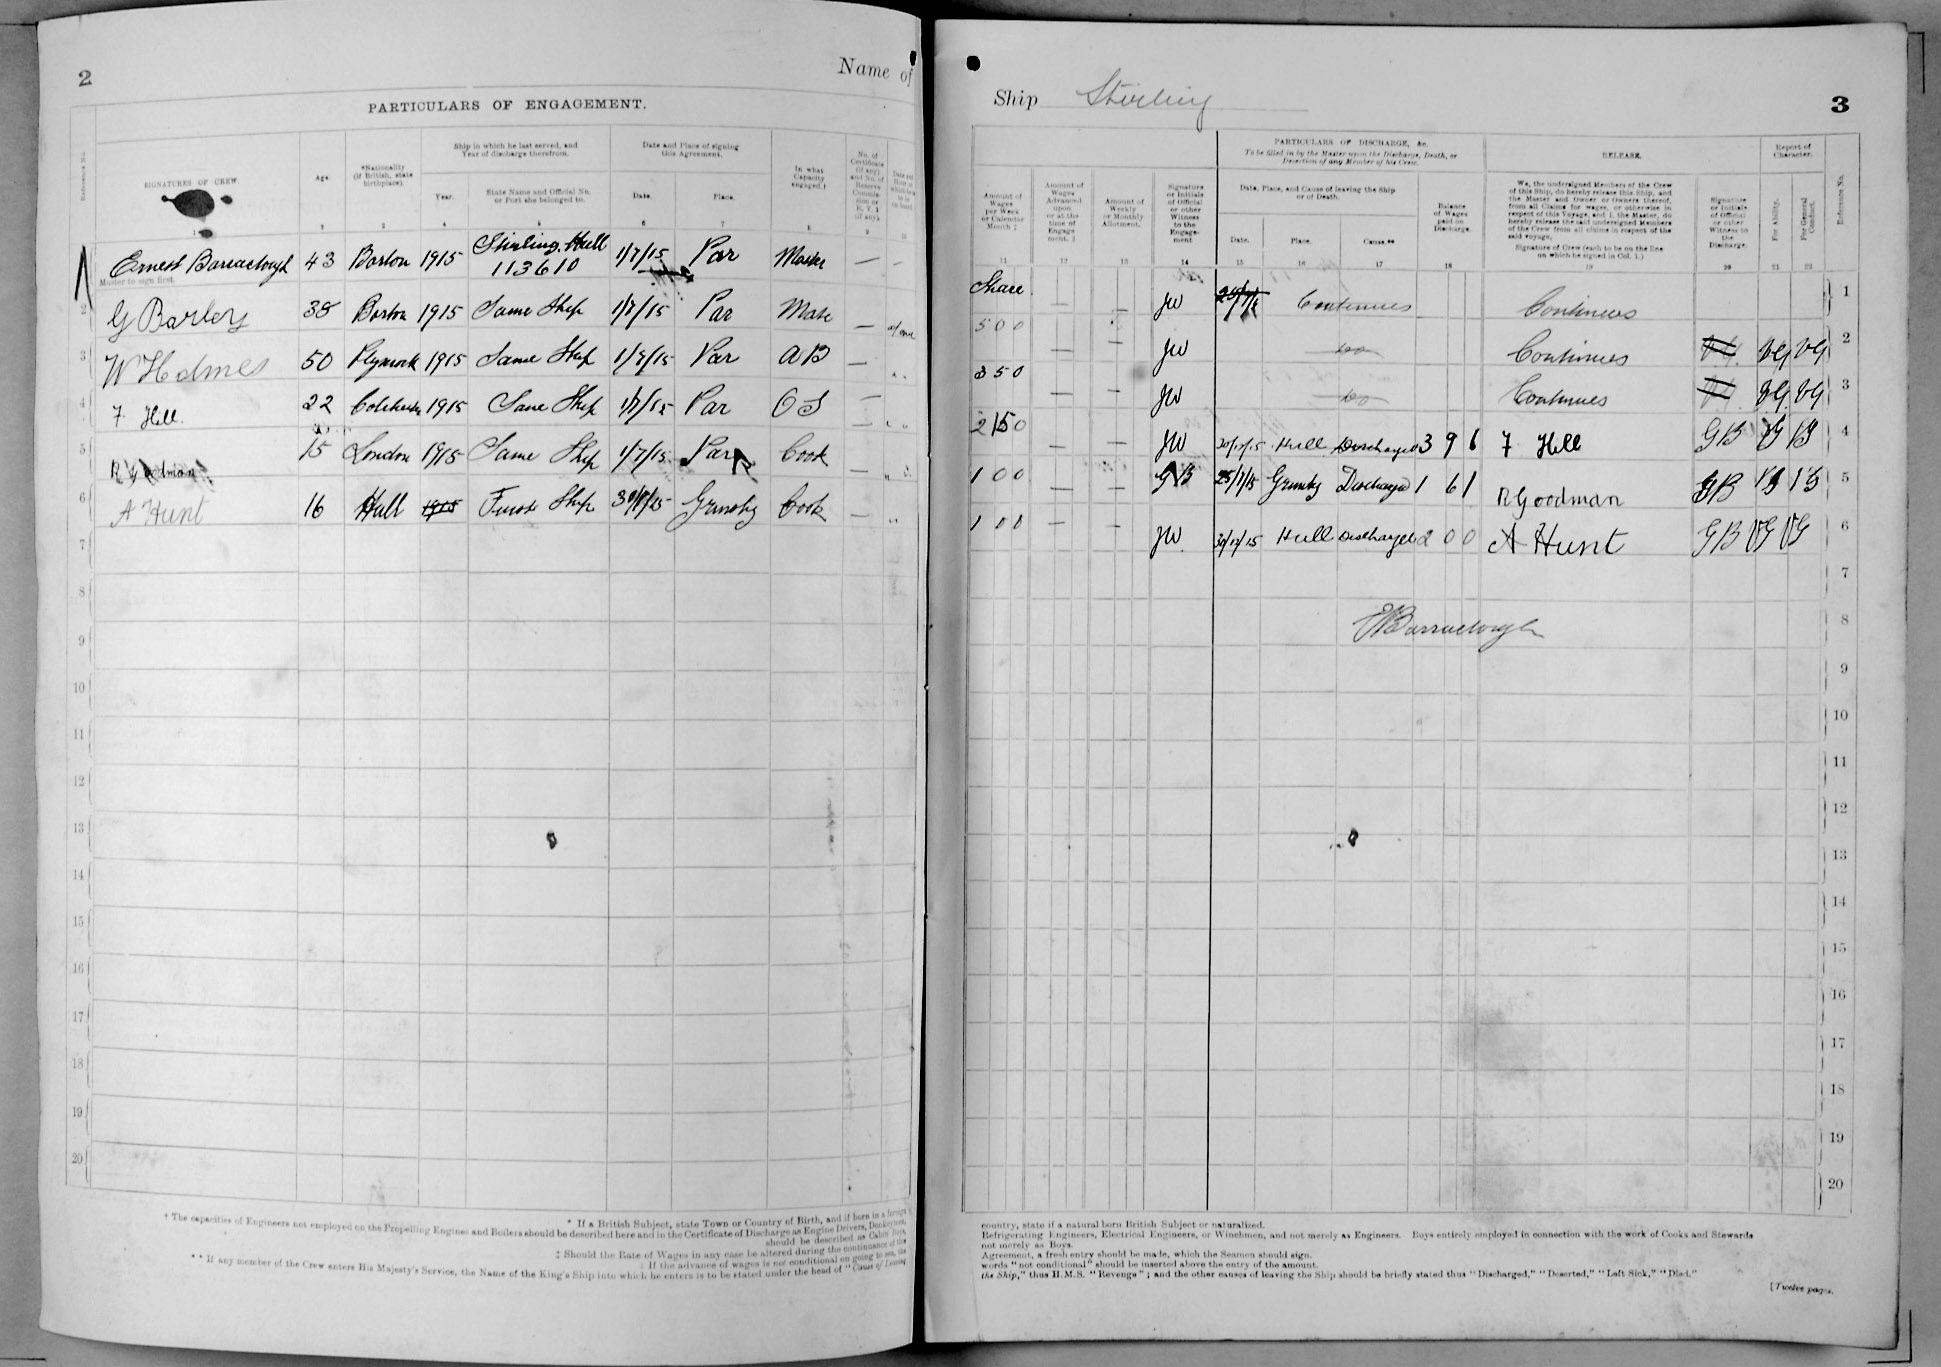 2
Name of
PARTICULARS OF ENGAGEMENT.
Reference No.
SIGNATURES OF CREW.
Age.
*Nationality (if British, state birthplace).
Ship in which he last served, and Year of discharge therefrom.
Year.
State Name and Official No. or Port she belonged to.
Date and Place of signing this Agreement.
Date.
Place.
In what Capacity engaged.†
No. of Certificate (if any) and No. of Reserve Commission or R. V. 2 (if any).
1 2 3 4 5 6 7 8 9 10
Ernest Barraclough 43 Barton 1915 Stirling. Hull 113610 1/7/15 Par Master —
Master to sign first.
2 G Barley 38 Barton 1915 Same Ship 1/7/15 Par Mate —
3 W Holmes 50 Plymouth 1915 Same Ship 1/7/15 Par AB —
4 F Hill. 22 Colchester 1915 Same Ship 1/7/15 Par OS —
5 R Goodman 15 London 1915 Same Ship 1/7/15 Par Cook —
6 A Hunt 16 Hull 1915 First Ship Grimsby Cook —
7
8
9
10
11
12
13
14
15
16
17
18
19
20
* If a British Subject, state Town or Country of Birth, and if born in a foreign
† The capacities of Engineers not employed on the Propelling Engines and Boilers should be described here and in the Certificate of Discharge as Engine Drivers, Donkeymen,
should be described as Cabin Boys,
‡ Should the Rate of Wages in any case be altered during the continuance of the
‡ If the advance of wages is not conditional on going to sea, the
** If any member of the Crew enters His Majesty's Service, the Name of the King's Ship into which he enters is to be stated under the head of "Cause of Leaving
Ship Stirling
3
Amount of Wages per Week or Calendar Month ‡
Amount of Wages Advanced upon or at the time of Engagement. ‡
Amount of Weekly or Monthly Allotment.
Signature or Initials of Official or other Witness to the Engagement
PARTICULARS OF DISCHARGE, &c.
To be filled in by the Master upon the Discharge, Death, or Desertion of any Member of his Crew.
Date, Place, and Cause of leaving the Ship or of Death.
Date.
Place.
Cause.**
Balance of Wages paid on Discharge.
RELEASE.
We, the undersigned Members of the Crew
of this Ship, do hereby release this Ship, and
the Master and Owner or Owners thereof,
from all Claims for wages, or otherwise in
respect of this Voyage, and I, the Master, do
hereby release the said undersigned Members
of the Crew from all claims in respect of the
said voyage.
Signature of Crew (each to be on the line
on which he signed in Col. 1.)
Signature or Initials of Official or other Witness to the Discharge.
Report of Character.
For Ability.
For General Conduct.
Reference No.
11 12 13 14 15 16 17 18 19 20 21 22
Share — — JW Continues Continues 1
5 0 0 — JW do Continues VG VG 2
3 5 0 — — JW do Continues VG VG 3
2 15 0 — — JW 30/12/15 Hull Discharged 3 9 6 F Hill GB VG 4
1 0 0 — — GB 25/7/15 Grimsby Discharged 1 6 1 R Goodman GB VG VG 5
1 0 0 — — JW 30/12/15 Hull Discharged 2 0 0 A Hunt GB VG VG 6
7
E Barraclough 8
9
10
11
12
13
14
15
16
17
18
19
20
country, state if a natural born British Subject or naturalized.
Refrigerating Engineers, Electrical Engineers, or Winchmen, and not merely as Engineers. Boys entirely employed in connection with the work of Cooks and Stewards
not merely as Boys.
Agreement, a fresh entry should be made, which the Seamen should sign.
words "not conditional" should be inserted above the entry of the amount.
the Ship," thus H.M.S. "Revenge"; and the other causes of leaving the Ship should be briefly stated thus "Discharged," "Deserted," "Left Sick," "Died."
[Twelve pages.